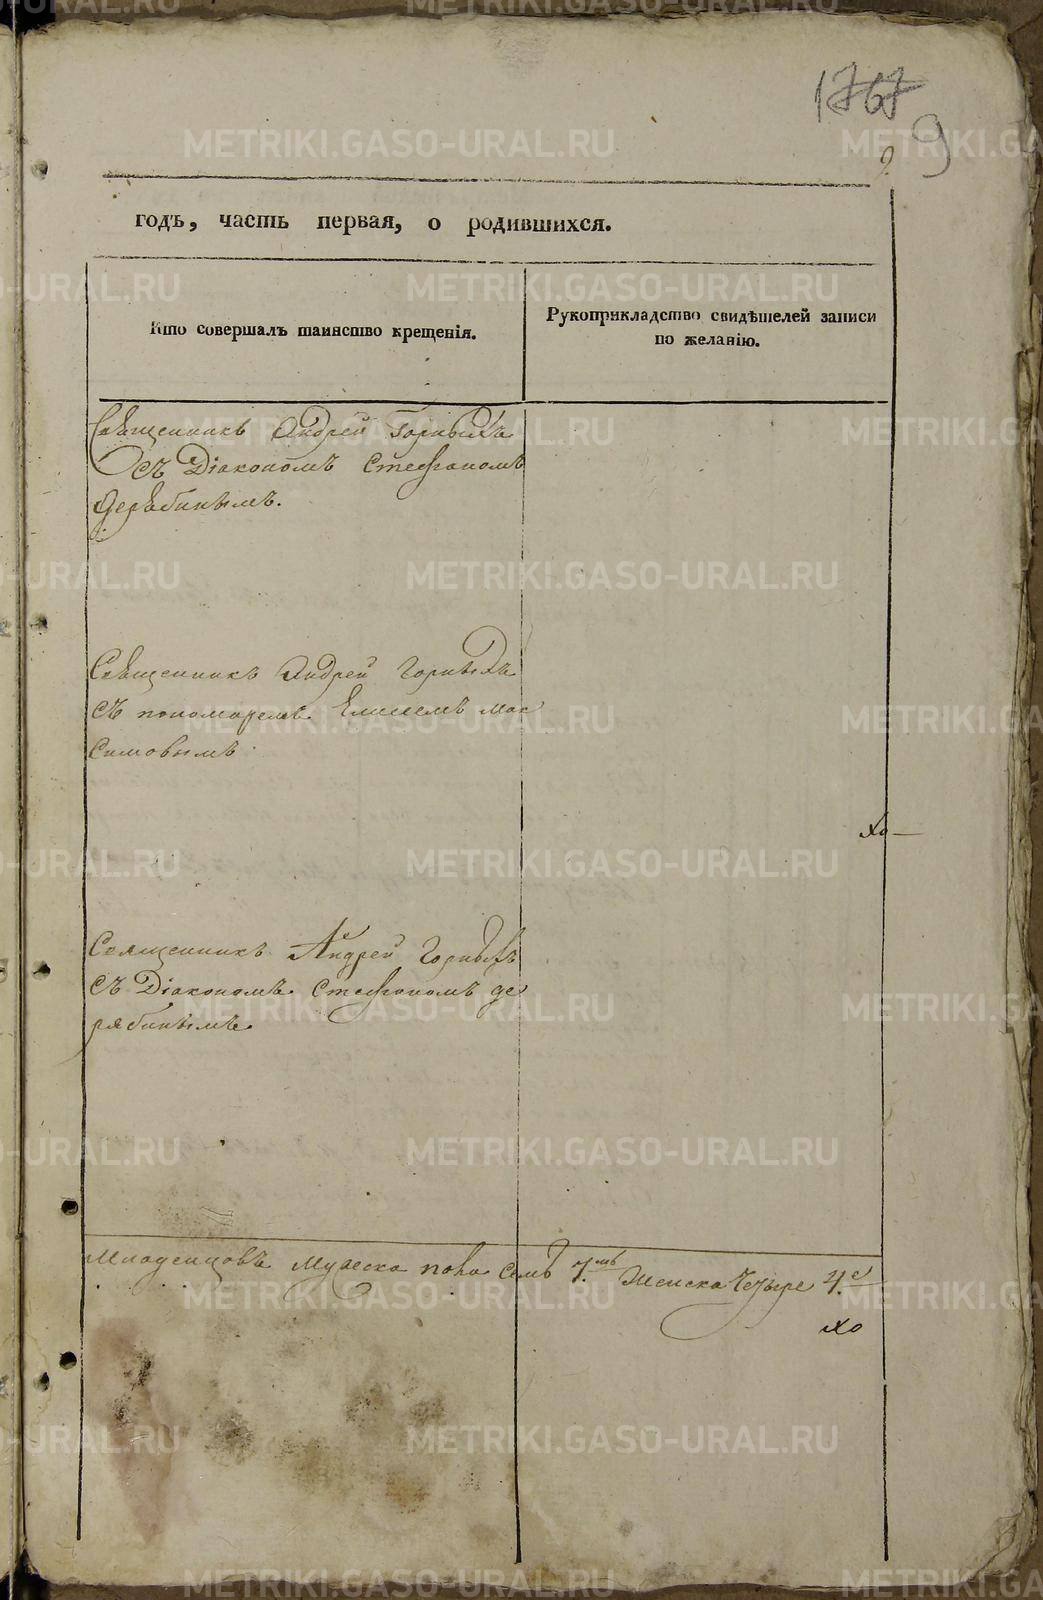 1767
9
9.
годъ, часть первая, о родившихся.
Кто совершалъ таинство крещенія.
Рукоприкладство свидѣтелей записи
по желанію.
Священникъ Андрей Горныхъ
съ Діакономъ Стефаномъ
Дерябинымъ.
Священникъ Андрей Горныхъ
съ пономаремъ Елисеемъ Мак
симовымъ
Священникъ Андрей Горныхъ
съ Діакономъ Стефаномъ Де
рябинымъ
Младенцовъ мужеска пола семь 7.мь женска четыре 4.е
METRIKI.GASO-URAL.RU